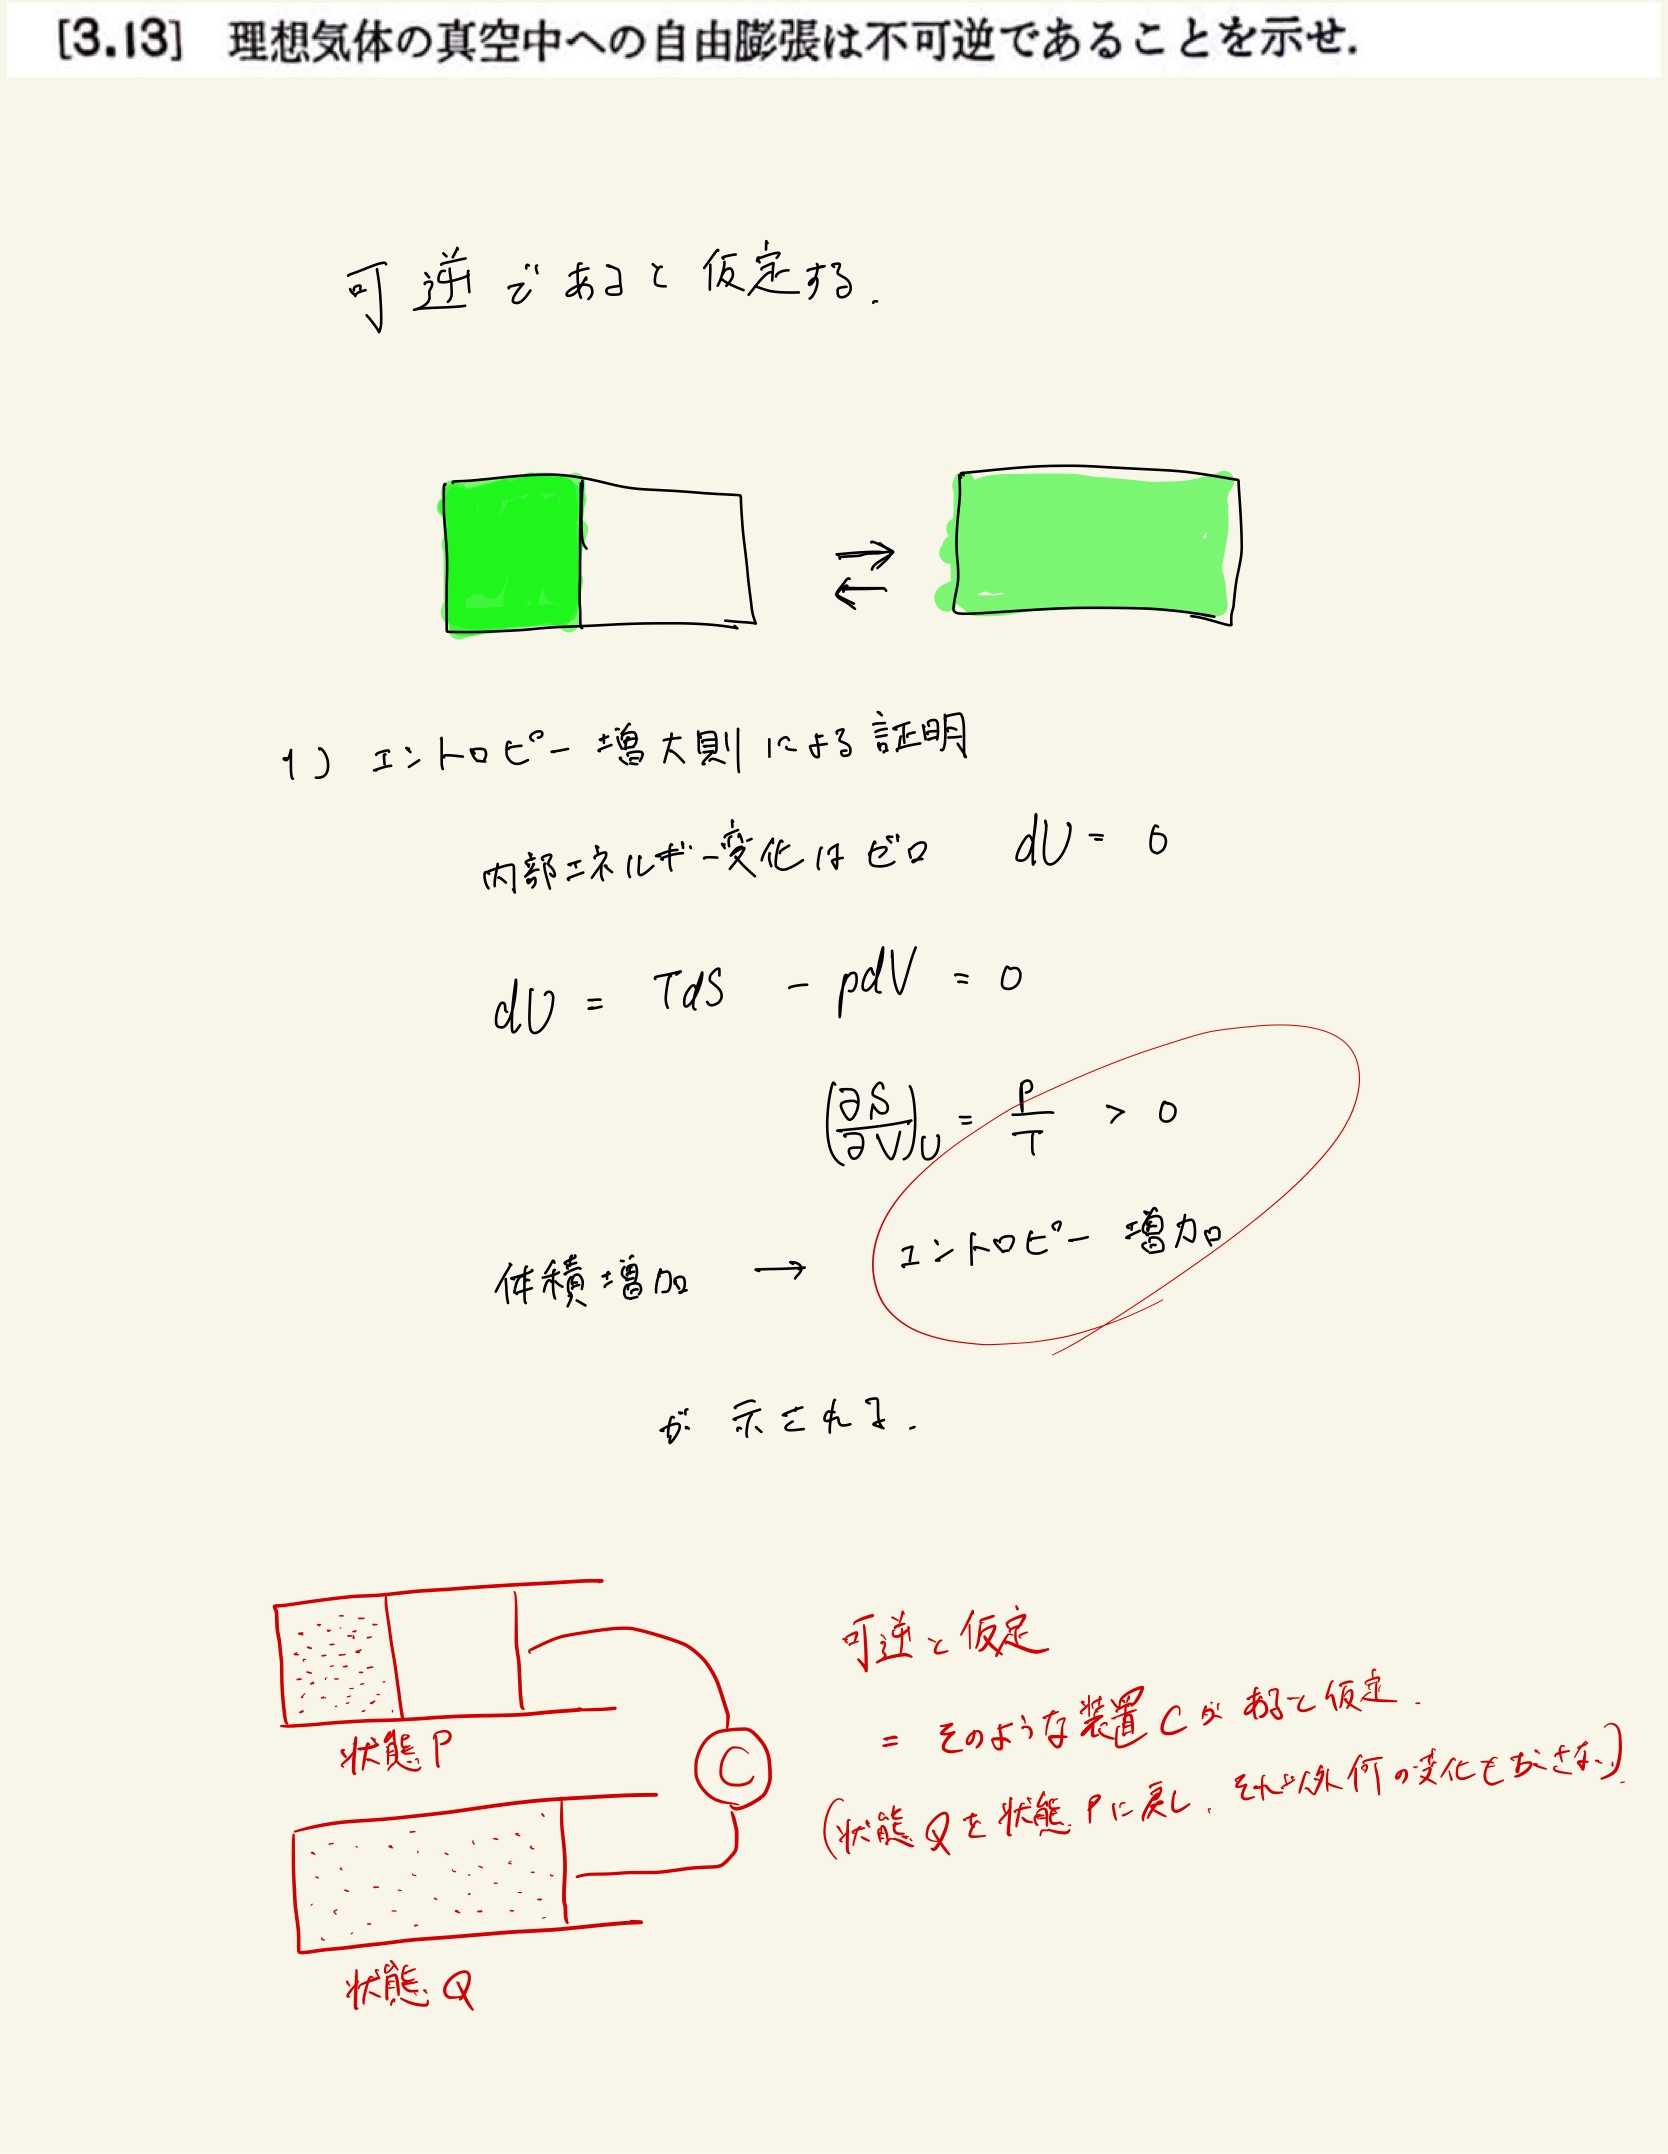 [3.13] 理想気体の真空中への自由膨張は不可逆であることを示せ.
可逆であると仮定する.
1) エントロピー増大則による証明
内部エネルギー変化はゼロ dU = 0
dU = TdS - pdV = 0
(∂S/∂V)U = P/T > 0
体積増加 → エントロピー増加
が示される.
可逆と仮定
= そのような装置Cがあると仮定.
(状態Qを状態Pに戻し、それ以外何の変化もおこさない)
状態P
C
状態Q